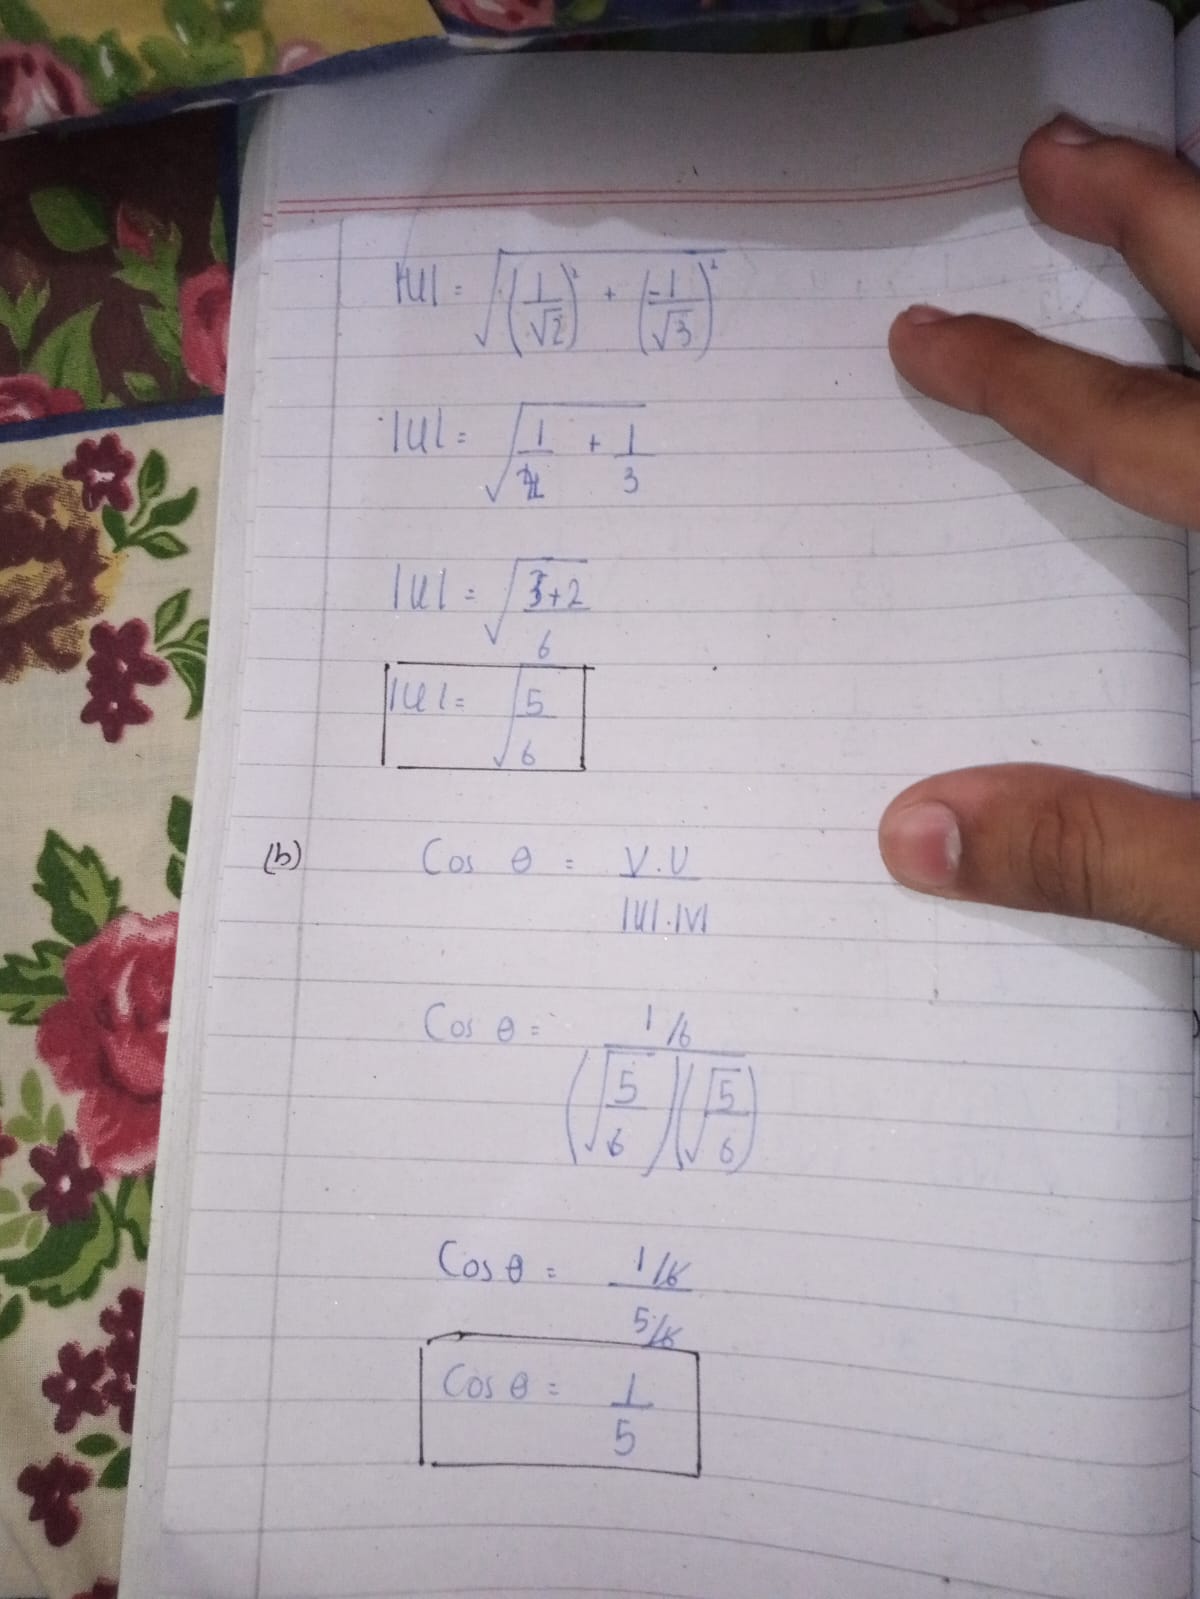 |U| = √((1/√2)² + (-1/√3)²)
|U| = √(1/2 + 1/3)
|U| = √((3+2)/6)
|U| = √(5/6)
(b) Cos θ = V.U / |U|.|V|
Cos θ = 1/6 / (√(5/6))(√(5/6))
Cos θ = 1/6 / 5/6
Cos θ = 1/5